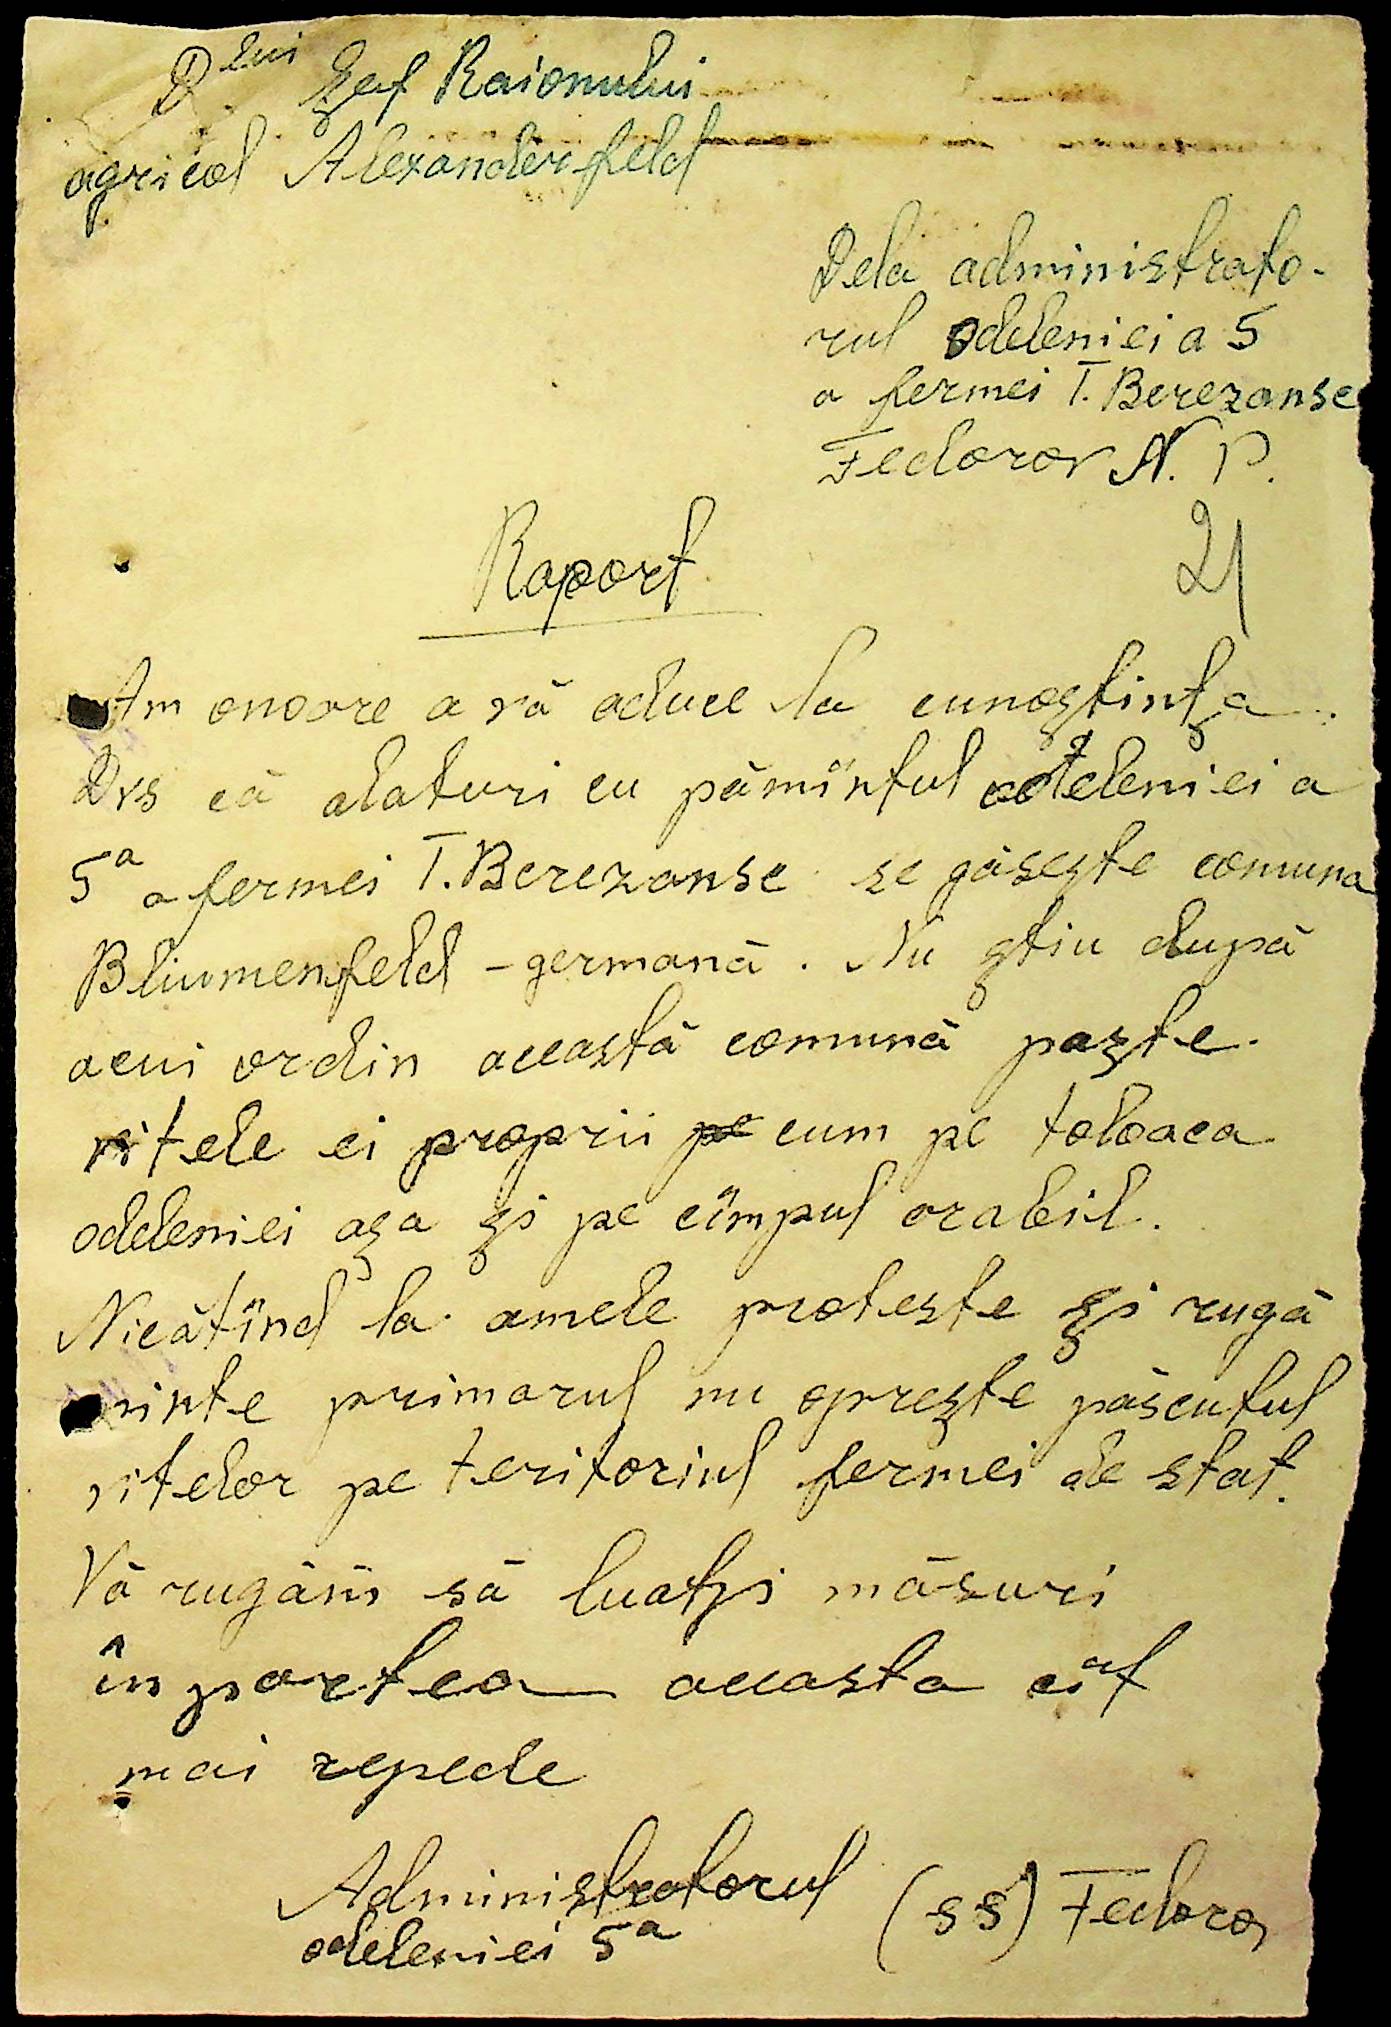 Dlui Șef Raionului
agricol Alexanderfeld
Dela administrato-
rul odeleniei a 5
a fermei T. Berezansc
Fedorov N. P.
21
Raport
Am onoare a vă aduce la cunoștința
Dvs că alaturi cu pămîntul otdeleniei a
5a a fermei T. Berezansc se găsește comuna
Bliumenfeld - germană. Nu știu după
acui ordin această comună paște
vitele ei proprii cum pe toloaca
oddeniei așa și pe cîmpul arabil.
Nicătînd la amele proteste și rugă
minte primarul nu oprește păscutul
vitelor pe teritoriul fermei de stat.
Vă rugăm să luatzi măsuri
în partea aceasta cît
mai repede
Administratorul (ss) Fedorov
odeleniei 5a